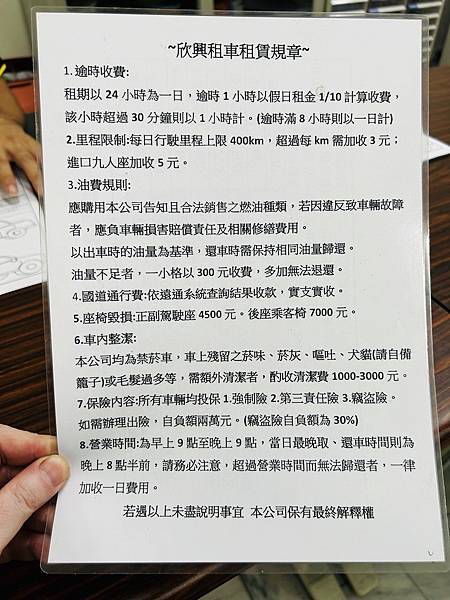 ~欣興租車租賃規章~
1. 逾時收費:
租期以 24 小時為一日，逾時 1 小時以假日租金 1/10 計算收費，
該小時超過 30 分鐘則以 1 小時計。(逾時滿 8 小時則以一日計)
2.里程限制:每日行駛里程上限 400km，超過每 km 需加收 3 元；
進口九人座加收 5 元。
3.油費規則:
應購用本公司告知且合法銷售之燃油種類，若因違反致車輛故障
者，應負車輛損害賠償責任及相關修繕費用。
以出車時的油量為基準，還車時需保持相同油量歸還。
油量不足者，一小格以 300 元收費，多加無法退還。
4.國道通行費:依遠通系統查詢結果收款，實支實收。
5.座椅毀損:正副駕駛座 4500 元。後座乘客椅 7000 元。
6.車內整潔:
本公司均為禁菸車，車上殘留之菸味、菸灰、嘔吐、犬貓(請自備
籠子)或毛髮過多等，需額外清潔者，酌收清潔費 1000-3000 元。
7.保險內容:所有車輛均投保 1.強制險 2.第三責任險 3.竊盜險。
如需辦理出險，自負額兩萬元。(竊盜險自負額為 30%)
8.營業時間:為早上 9 點至晚上 9 點，當日最晚取、還車時間則為
晚上 8 點半前，請務必注意，超過營業時間而無法歸還者，一律
加收一日費用。
若遇以上未盡說明事宜 本公司保有最終解釋權